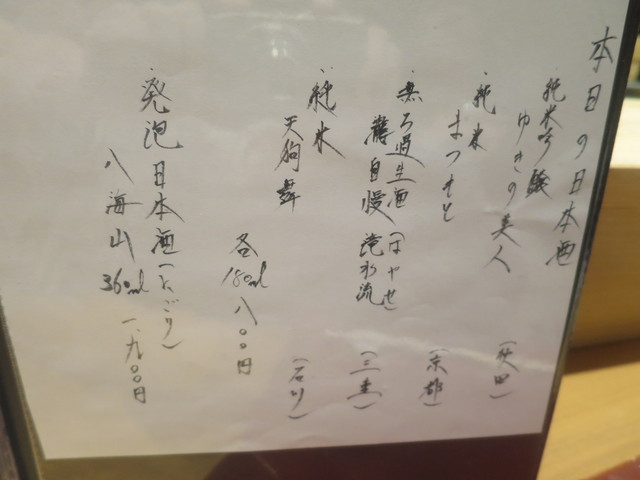 本日の日本酒
純米吟醸
ゆきの美人
(秋田)
純米
まつもと
(京都)
無ろ過生酒(はやせ)
瀧自慢 滝水流
(三重)
純米
天狗舞
(石川)
各180ml 八〇〇円
発泡日本酒(にごり)
八海山 360ml 一、九〇〇円